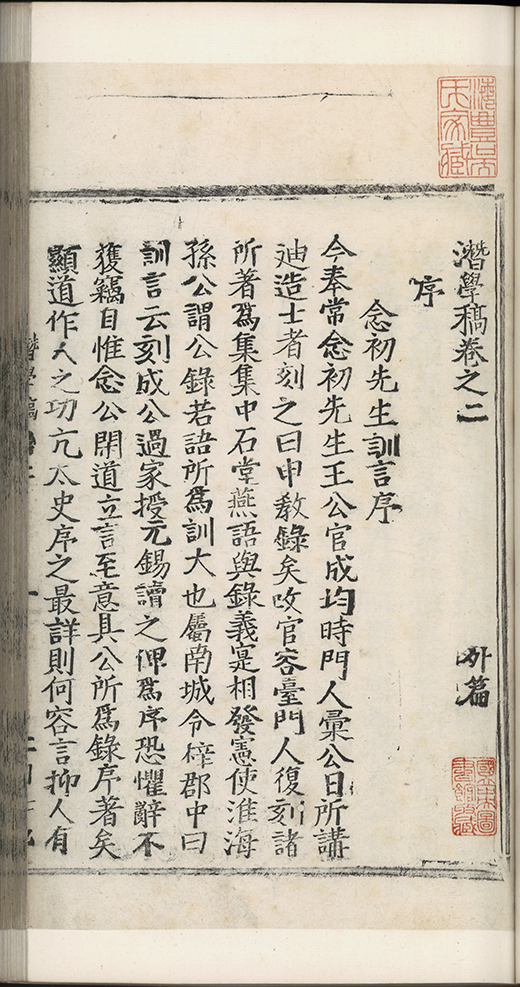 潛學稿卷之二 外篇
序
念初先生訓言序
今奉常念初先生王公官成均時門人彙公日所講
迪造士者刻之曰申教錄矣改官容臺門人復刻諸
所著為集集中石堂燕語與錄義寔相發憲使淮海
孫公謂公錄若語所為訓大也屬南城令梓郡中曰
訓言云刻成公過家授元錫讀之俾為序恐懼辭不
獲竊自惟念公閑道立言至意具公所為錄序著矣
顯道作人之功亢太史序之最詳則何容言抑人有
潛學稿
潛豐吳氏家藏
國立中央圖書館收藏